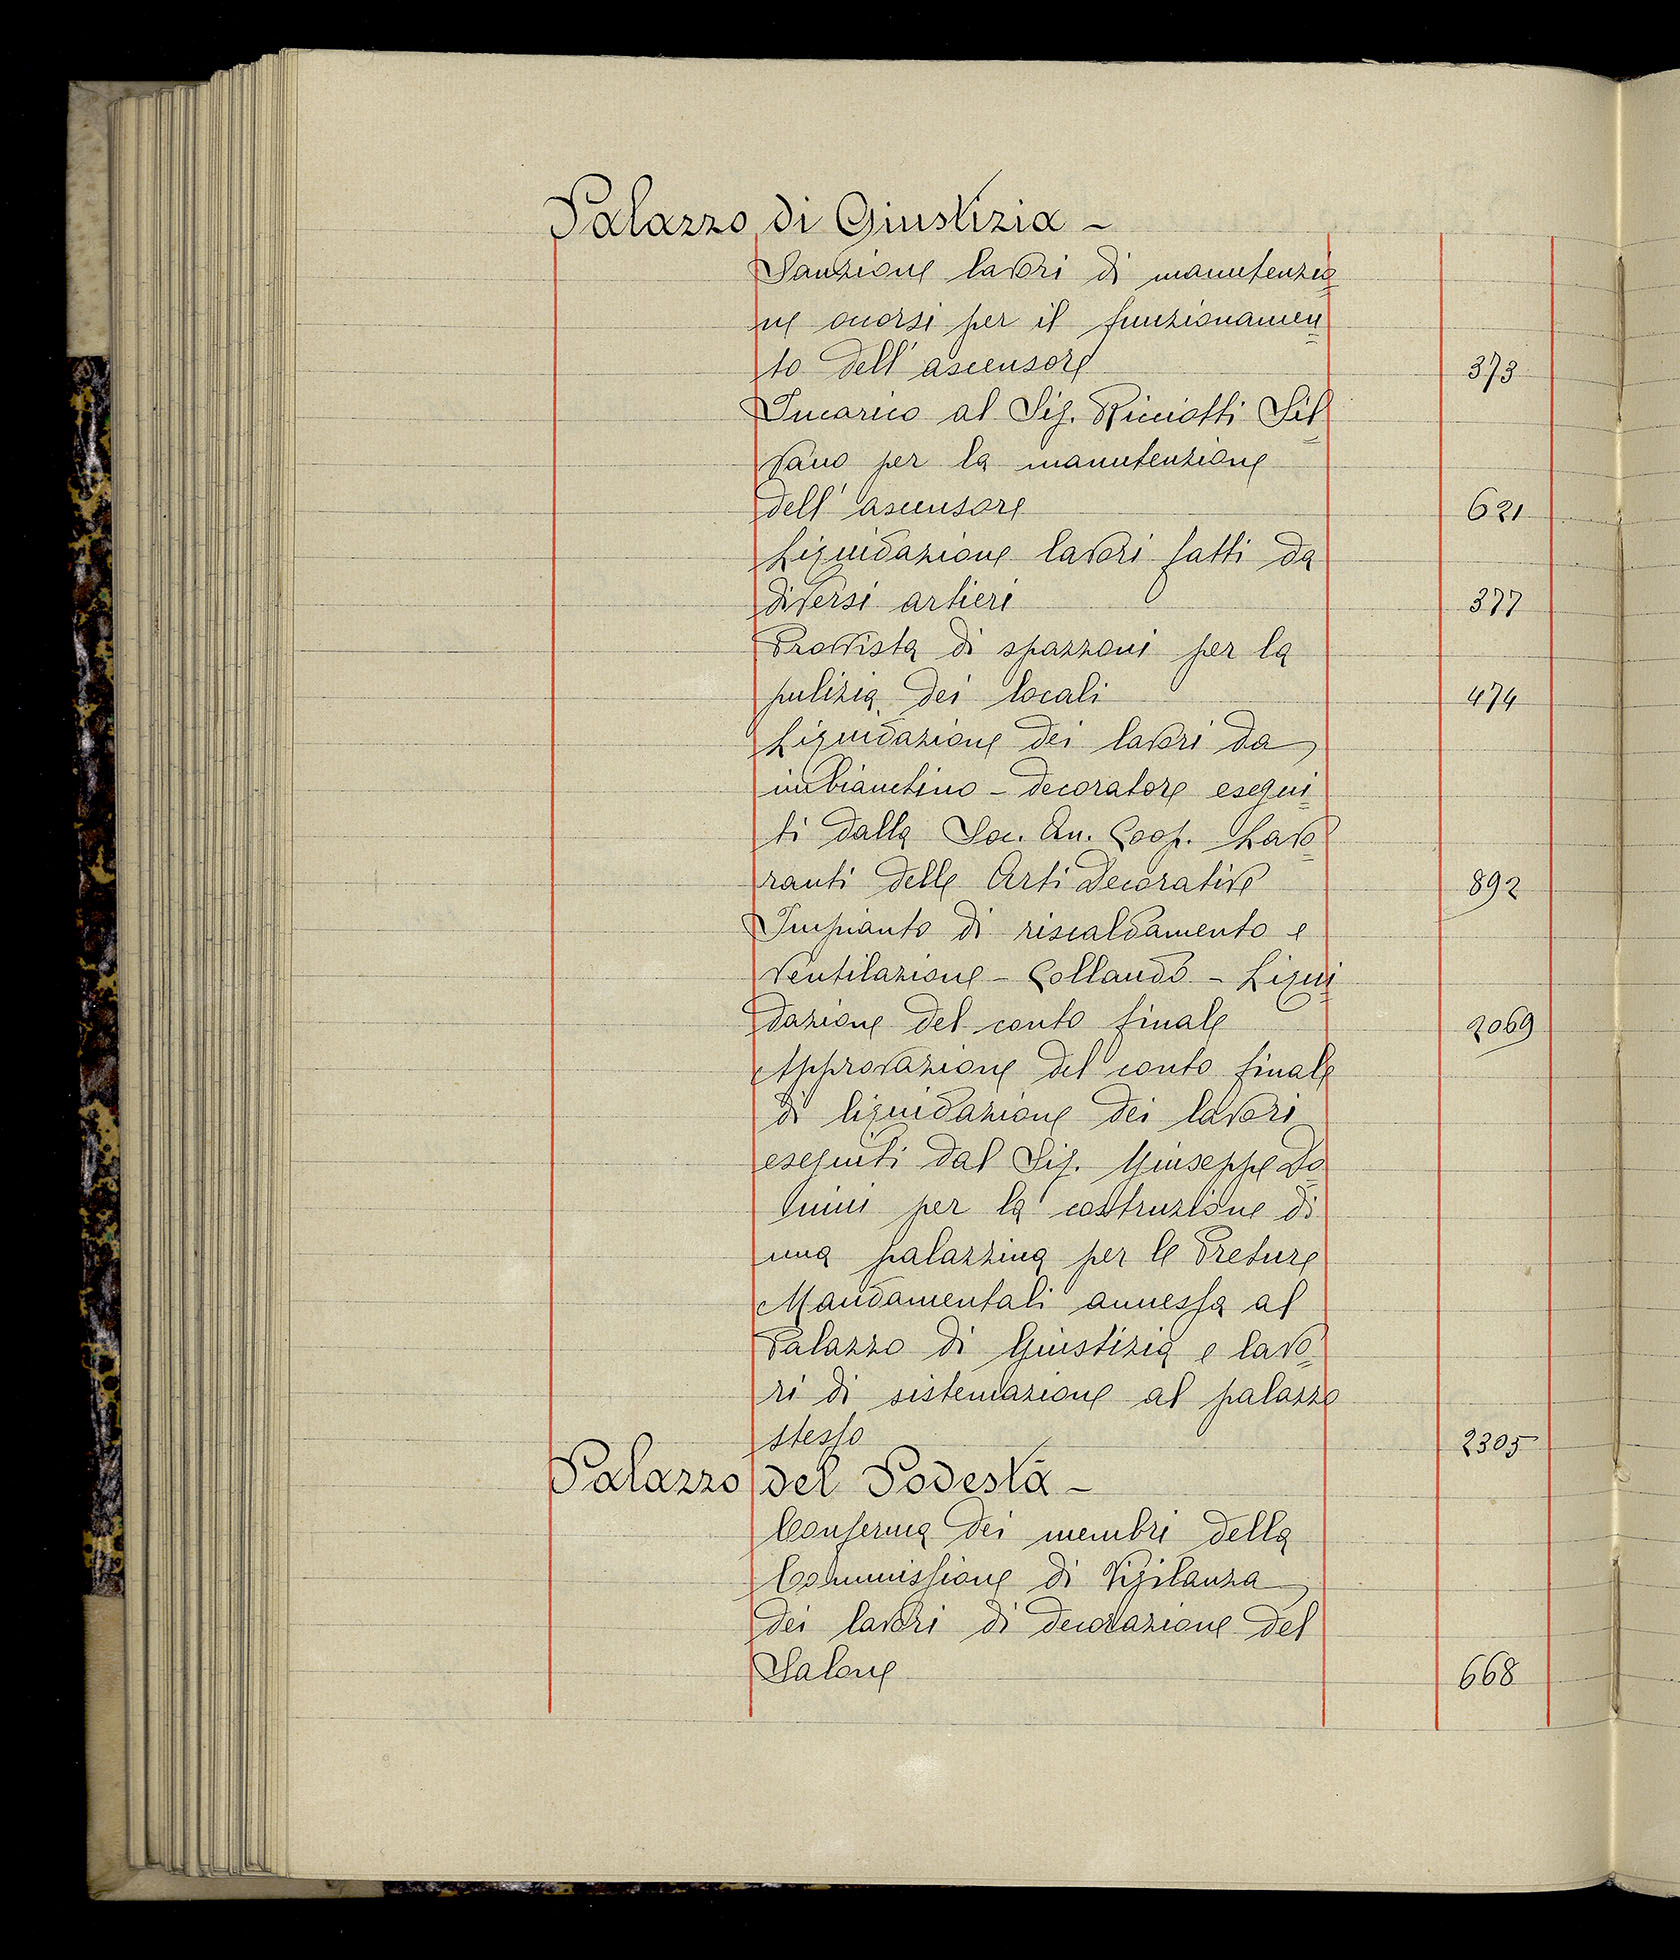 Palazzo di Giustizia -
Sanzione lavori di manutenzio
ne occorsi per il funzionamen
to dell'ascensore 373
Incarico al Sig. Ricciotti Sil
vano per la manutenzione
dell'ascensore 621
Liquidazione lavori fatti da
diversi artieri 377
Provvista di spazzoni per la
pulizia dei locali 474
Liquidazione dei lavori da
imbianchino - decoratore esegui
ti dalla Soc. An. Coop. Lavo
ranti delle Arti Decorative 892
Impianto di riscaldamento e
ventilazione - Collaudo - Liqui
dazione del conto finale 2069
Approvazione del conto finale
di liquidazione dei lavori
eseguiti dal Sig. Giuseppe Do
nini per la costruzione di
una palazzina per le Preture
Mandamentali annessa al
Palazzo di Giustizia e lavo
ri di sistemazione al palazzo
stesso 2305
Palazzo del Podestà -
Conferma dei membri della
Commissione di Vigilanza
dei lavori di decorazione del
Salone 668